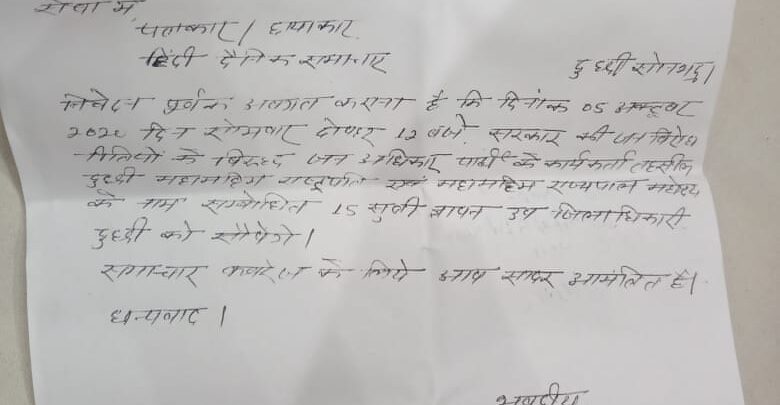 सेवा में
पत्रकार / छायाकार
हिंदी दैनिक समाचार
दुद्धी सोनभद्र।
निवेदन पूर्वक अवगत कराना है कि दिनांक 05 अक्टूबर
2020 दिन सोमवार दोपहर 12 बजे सरकार की जन विरोधी
नीतियों के विरुद्ध जन अधिकार पार्टी के कार्यकर्ता तहसील
दुद्धी महामहिम राष्ट्रपति एवं महामहिम राज्यपाल महोदय
के नाम सम्बोधित 15 सूत्री ज्ञापन उप जिलाधिकारी
दुद्धी को सौपेगे।
समाचार कवरेज के लिये आप सादर आमंत्रित है।
धन्यवाद।
भवदीय